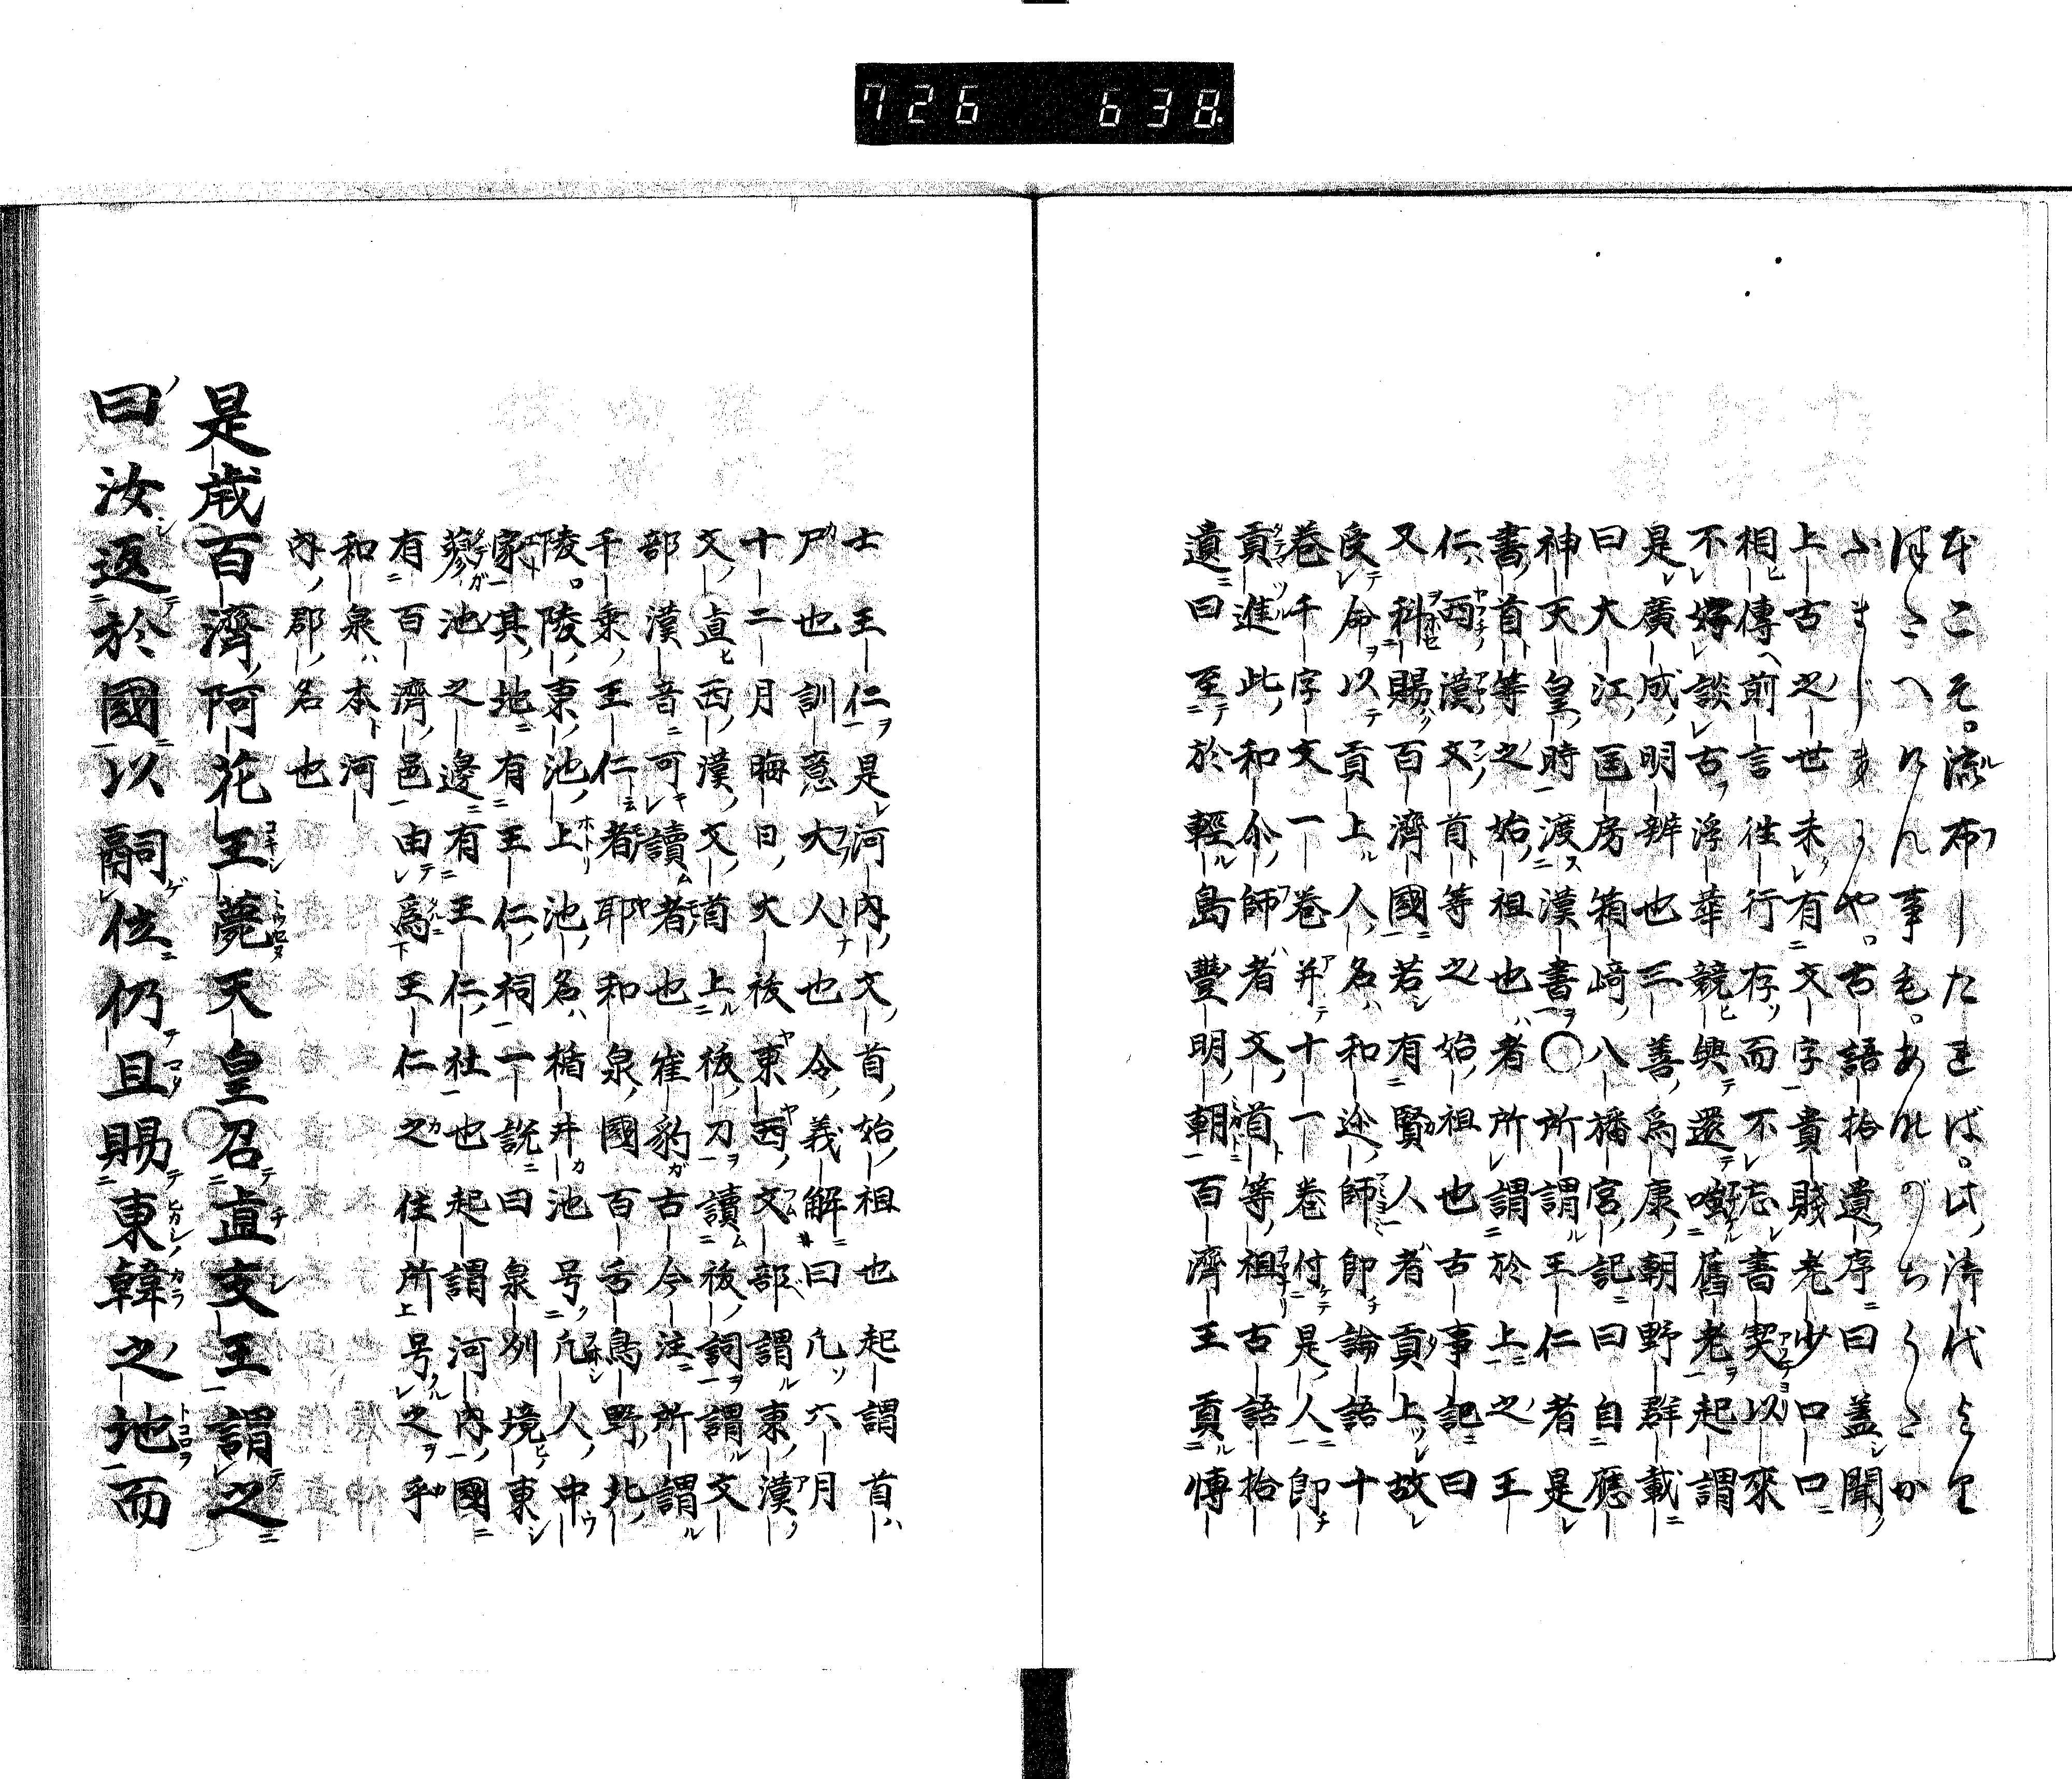 726 638.
本こそ。流布したれば。此、清代よりに
ほこへけん事毛。あれのちうこか
ふまじまうや。古語拾遺、序ニ曰蓋聞
上古之世未有文字貴賤老少口口
相傳前言徃行存而不忘書契以來
不好談古浮華競興還嗤舊老起謂
是廣成、明辨也三善、為康、朝野群載
曰大江、匡房筥﨑、八幡宮、記曰自應
神天皇、時渡漢書〇所謂王仁者是
書、首等之始、祖也者所謂於上之王
仁、西漢、文、首等之始、祖也古事記曰
又科賜百濟國若有賢人者貢上故
受命以貢上人、名和迩、師即論語十
巻千字文一巻并十一巻付是、人即
貢進此、和尒、師者文、首等、祖古語拾
遺曰至於輕島豐明、朝百濟王貢愽
士王仁是河内、文、首、始、祖也起謂首
尸也訓意大人也令、義解曰凢六月
十二月晦日、大祓東西、文部謂東、漢、
文、直西、漢、文、首上祓、刀讀祓、詞謂文
部漢音可讀者也崔豹古今注所謂
千乗、王仁者耶和泉、國百舌鳥野、北、
陵陵、東、池、上池、名楯井池号凢人、中
家其、地有王仁、祠一說曰泉刕境東
蓼池之邊有王仁、社也起謂河内、國
有百濟、邑由為王仁之住所号之乎
和泉本河
内、郡、名也
是歳百濟、阿花王薨天皇召直支王謂之
曰汝返於國以嗣位仍且賜東韓之地而